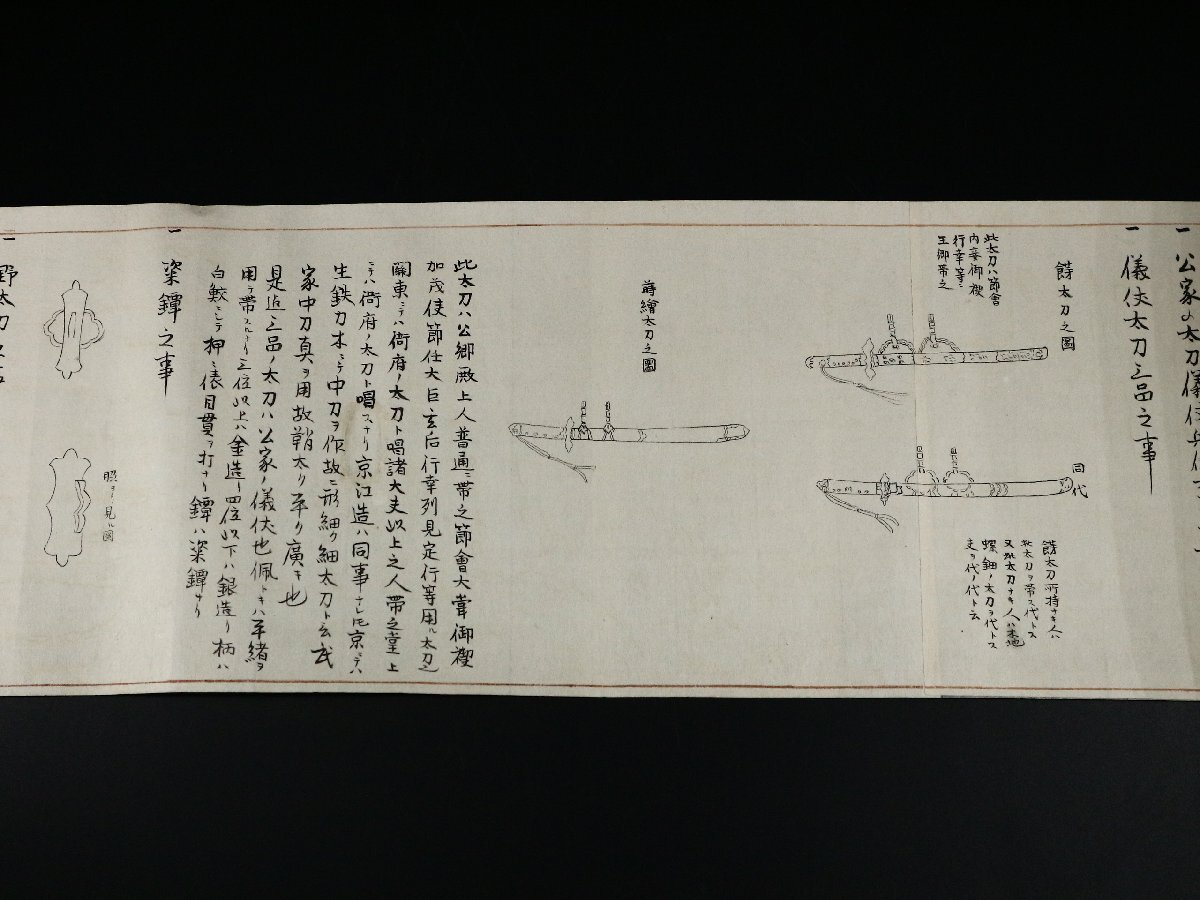 一 公家の太刀儀仗兵仗
一 儀仗太刀三品之事
餝太刀之圖
此太刀ハ節會
内宴御禊
行幸等ニ
王卿帯之
同代
餝太刀所持ナキ人ハ
此太刀ヲ帯ス代トス
又此太刀ナキ人ハ木地
螺鈿ノ太刀ヲ代トス
是ヲ代ノ代ト云
蒔繪太刀之圖
此太刀ハ公卿殿上人普通ニ帯之節會大嘗御禊
加茂使節仕大臣立后行幸列見定行等用ル太刀也
關東ニテハ衛府ノ太刀ト唱諸大夫以上之人帯之堂上
ニテハ衛府ノ太刀ト唱スナリ京江造ハ同事ナレ𪜈京ニテハ
生鉄刀木ニテ中刀ヲ作故ニ形細ク細太刀ト云武
家中刀真ヲ用故鞘太ク平ク廣キ也
是迄三品ノ太刀ハ公家ノ儀仗也佩トキハ平緒ヲ
用テ帯スルナリ三位以上ハ金造ー四位以下ハ銀造リ柄ハ
白鮫ニテ押シ俵目貫ヲ打ナリ鐔ハ粢鐔ナリ
一 粢鐔之事
照ヨリ見ル圖
一 野太刀之